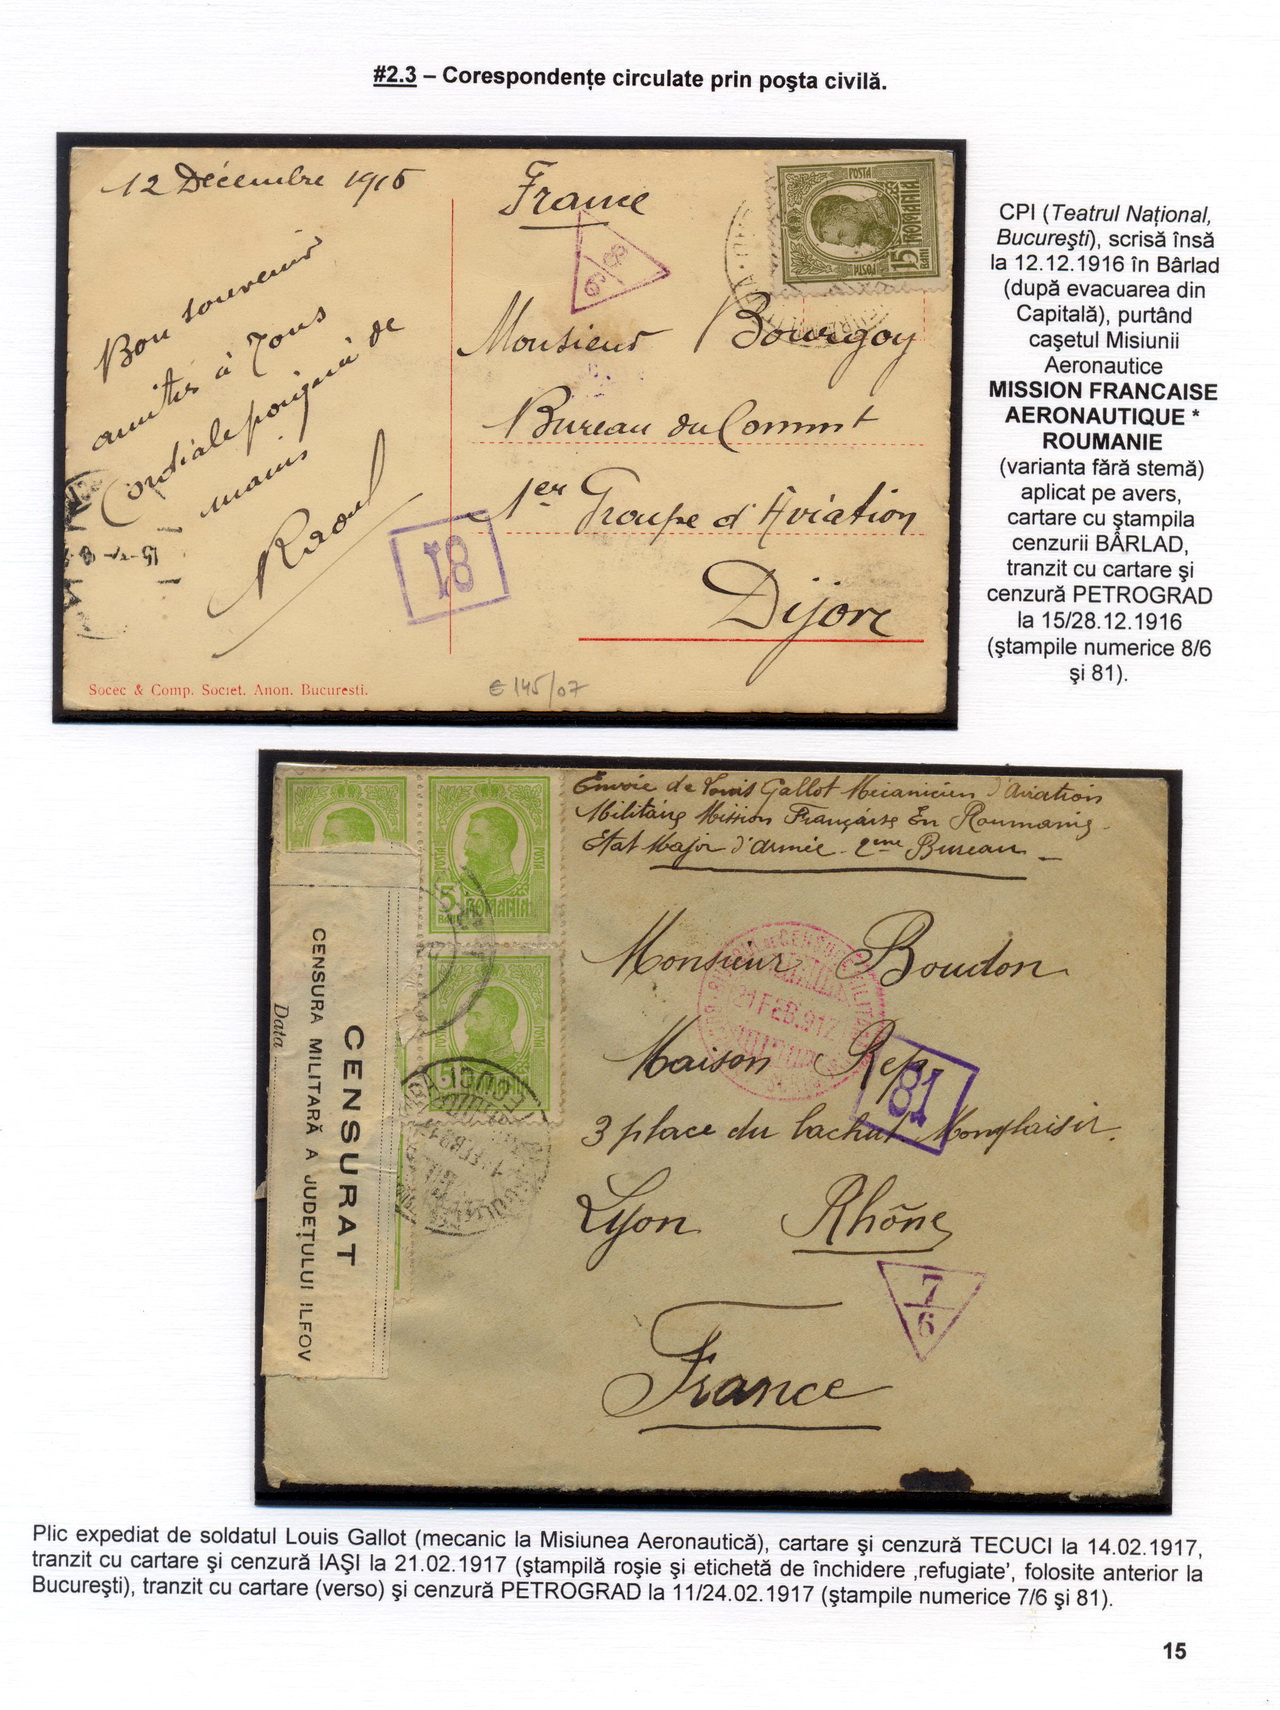 #2.3 – Corespondenţe circulate prin poşta civilă.
12 Décembre 1916
Bon souvenir
amitiés à Tous
Cordiale poignée de
mains
Raoul
France
8/6
POSTA
15 BANI
ROMANIA
Monsieur Bourgoy
Bureau du Commt
1er Groupe d'Aviation
Dijon
81
Socec & Comp. Societ. Anon. Bucuresti.
€ 145/07
CPI (Teatrul Naţional,
Bucureşti), scrisă însă
la 12.12.1916 în Bârlad
(după evacuarea din
Capitală), purtând
caşetul Misiunii
Aeronautice
MISSION FRANCAISE
AERONAUTIQUE *
ROUMANIE
(varianta fără stemă)
aplicat pe avers,
cartare cu ştampila
cenzurii BÂRLAD,
tranzit cu cartare şi
cenzură PETROGRAD
la 15/28.12.1916
(ştampile numerice 8/6
şi 81).
Envoie de Louis Gallot Mécanicien d'Aviation
Militaire Mission Française En Roumanie
Etat Major d'Armée 2eme Bureau
POSTA
5 BANI
ROMANIA
CENSURAT
CENSURA MILITARĂ A JUDEŢULUI ILFOV
Data
Monsieur Boudon
21 FEB. 917
Maison Rep
81
3 place du bachut Monplaisir.
Lyon Rhône
7/6
France
TECUCI
Plic expediat de soldatul Louis Gallot (mecanic la Misiunea Aeronautică), cartare şi cenzură TECUCI la 14.02.1917,
tranzit cu cartare şi cenzură IAŞI la 21.02.1917 (ştampilă roşie şi etichetă de închidere ‚refugiate’, folosite anterior la
Bucureşti), tranzit cu cartare (verso) şi cenzură PETROGRAD la 11/24.02.1917 (ştampile numerice 7/6 şi 81).
15